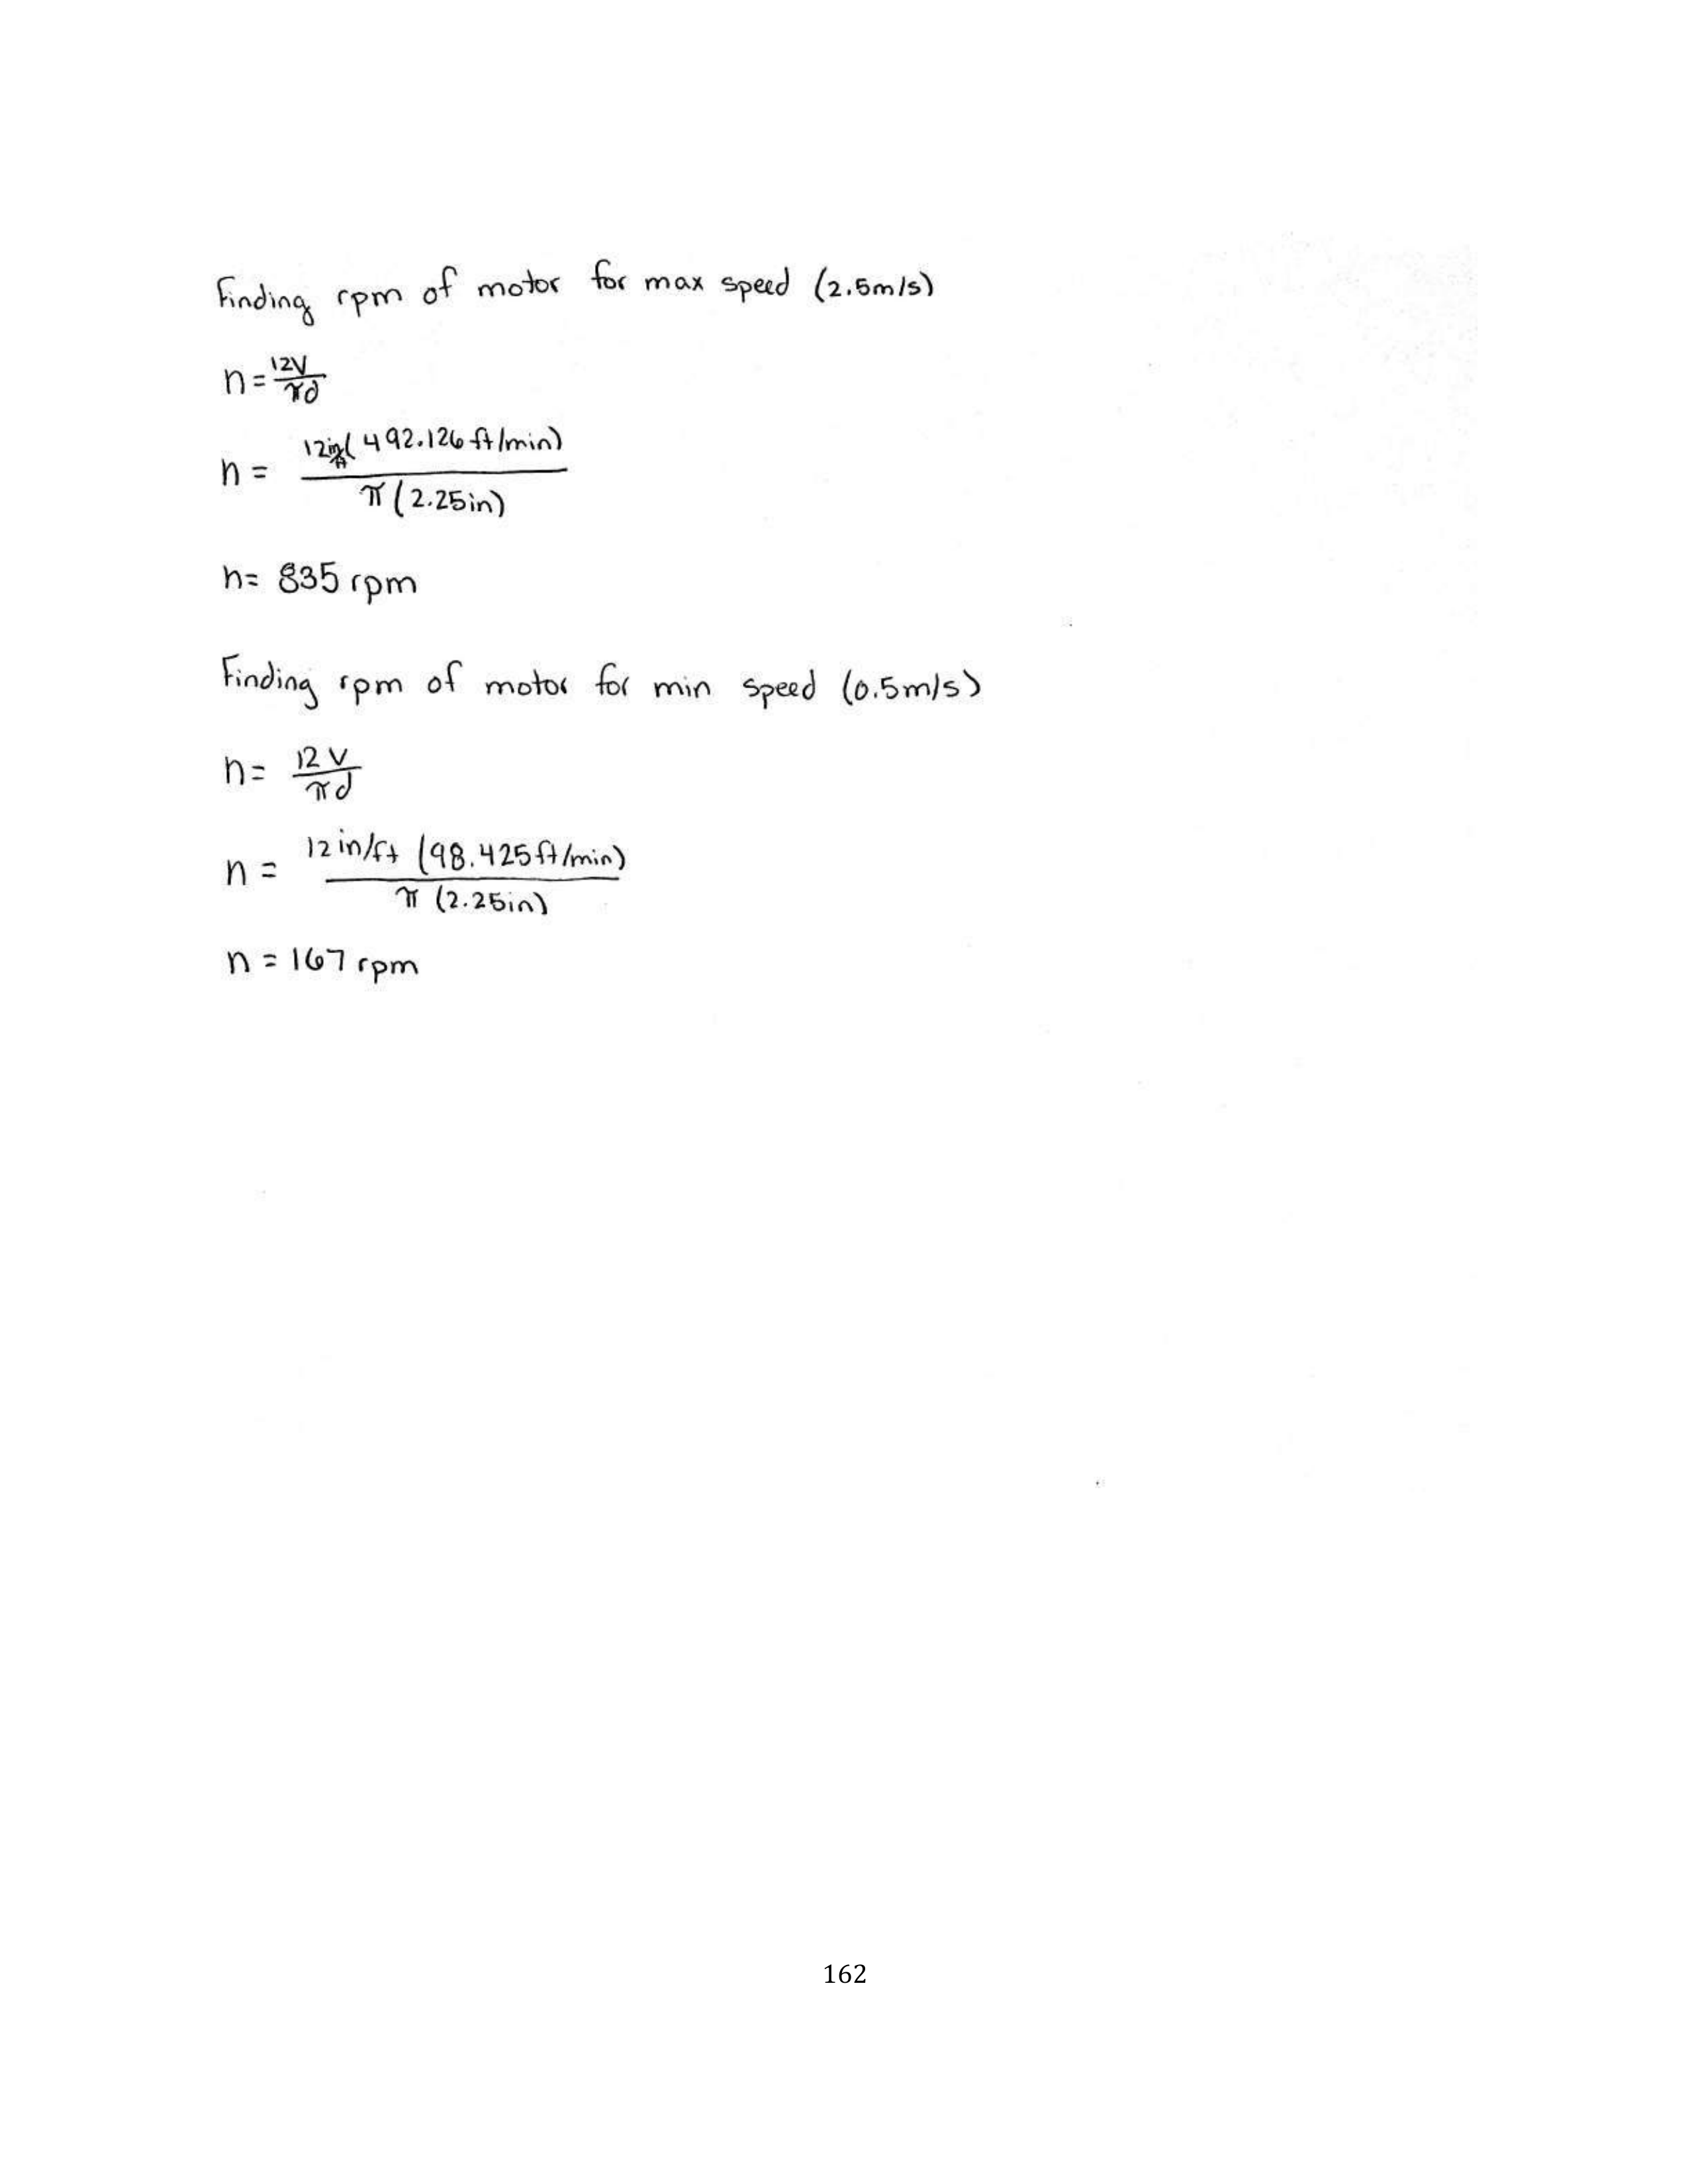 Finding rpm of motor for max speed (2.5m/s)
n = 12V / πd
n = 12 in/ft (492.126 ft/min) / π (2.25in)
n = 835 rpm
Finding rpm of motor for min speed (0.5m/s)
n = 12 V / πd
n = 12 in/ft (98.425 ft/min) / π (2.25in)
n = 167 rpm
162